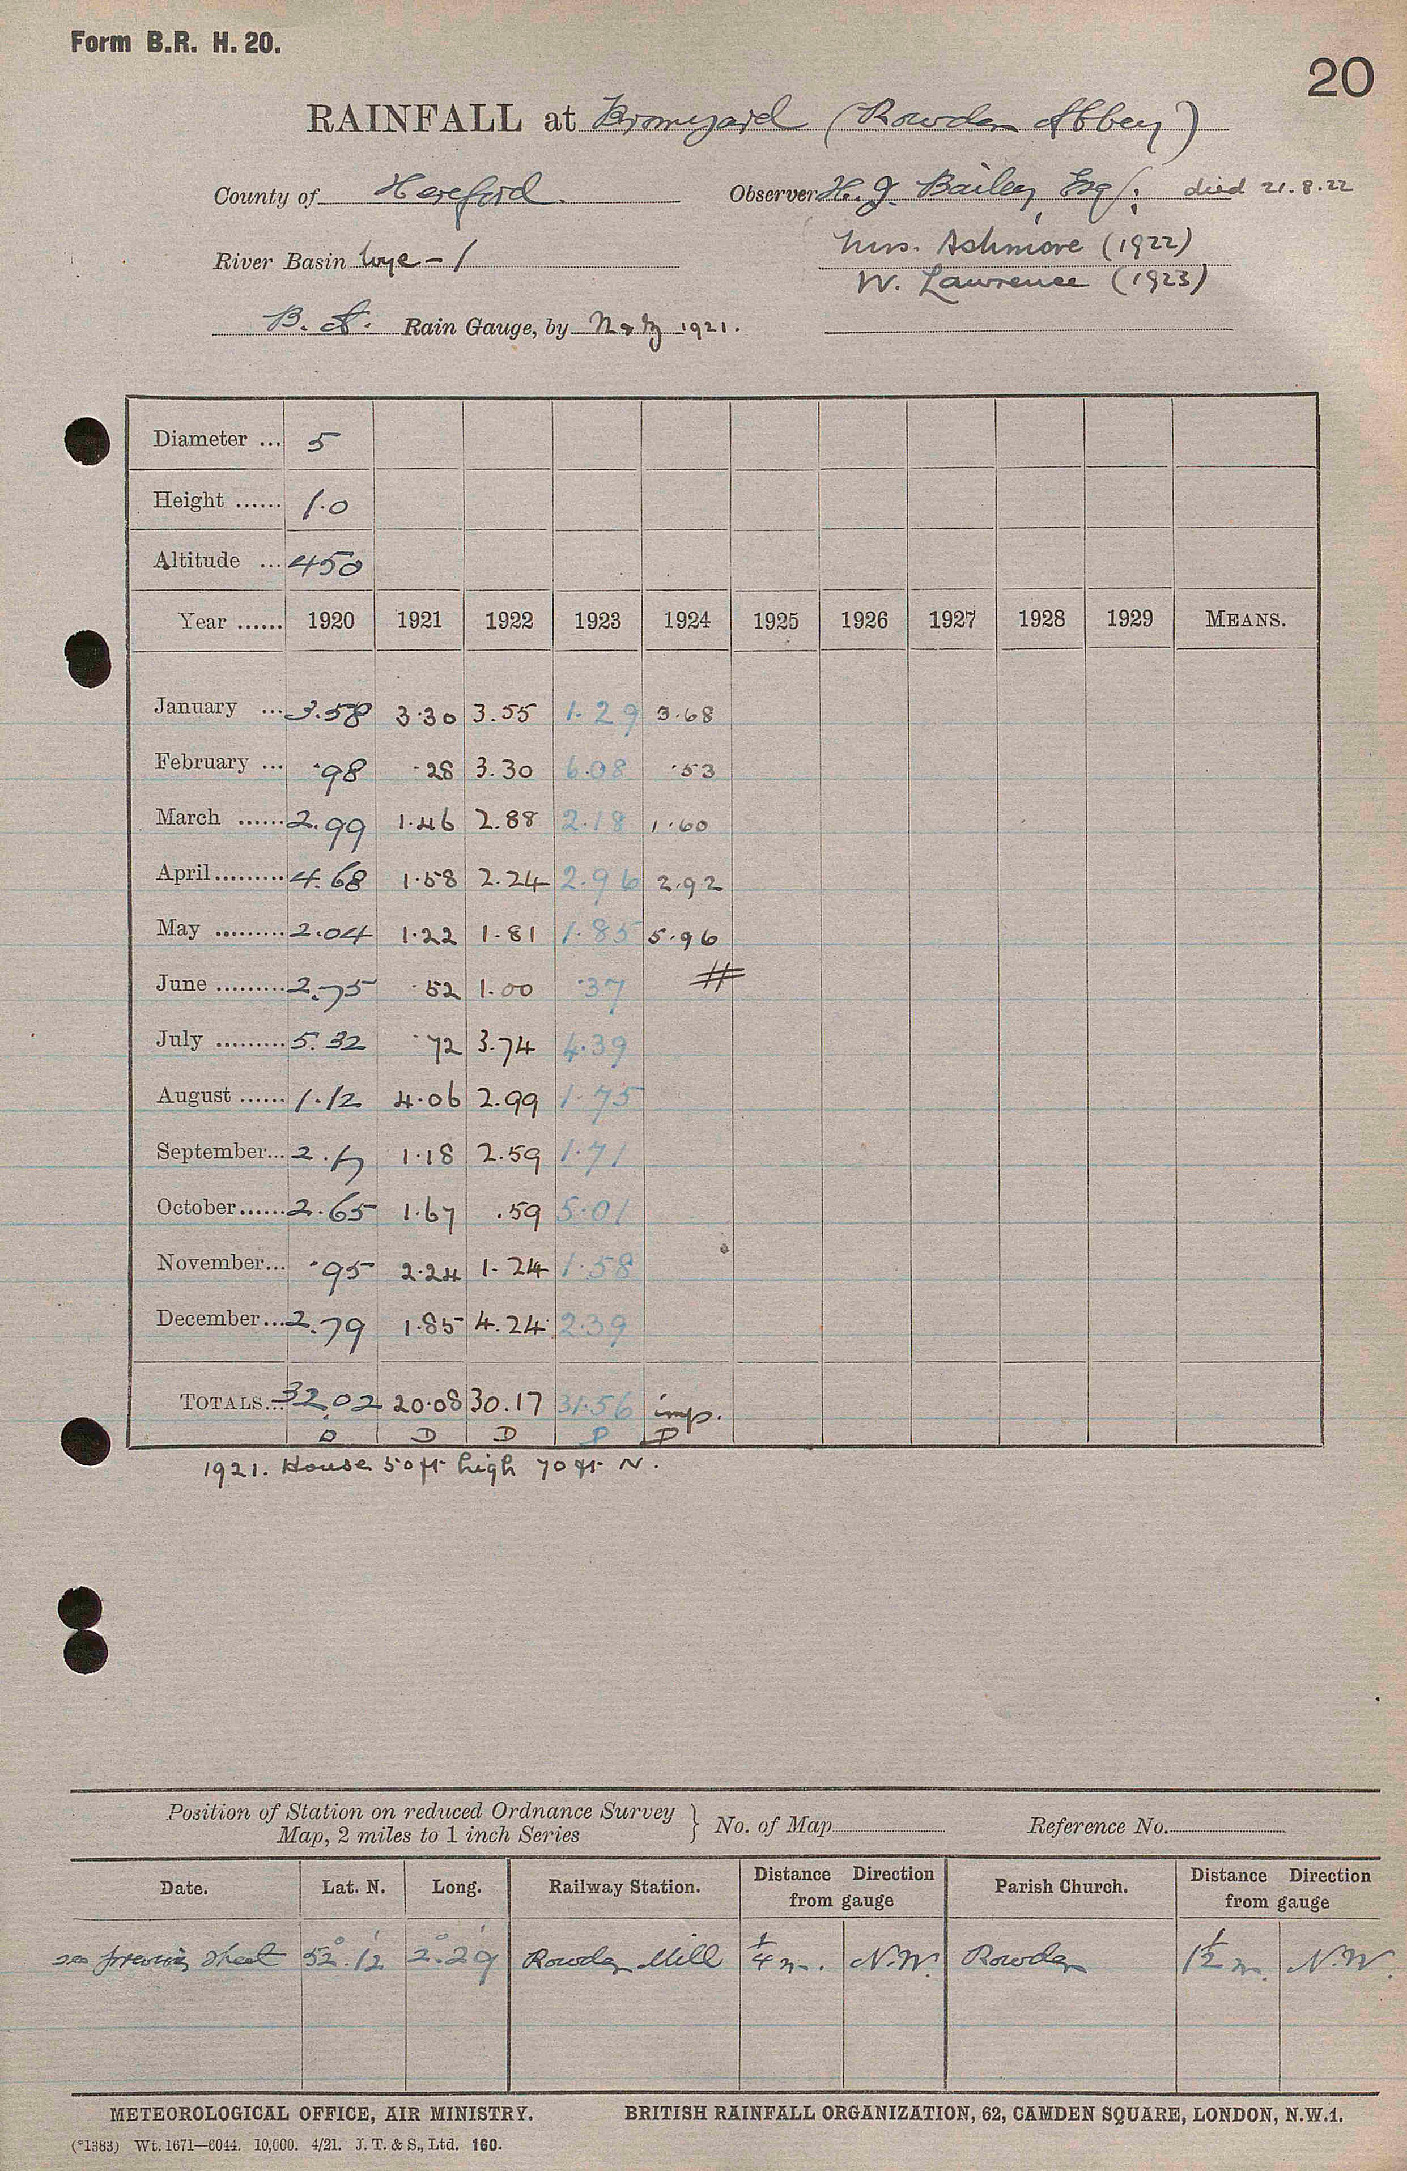 Form B.R. H. 20.
20
RAINFALL at Bromyard (Rowden Abbey)
County of Hereford Observer H. J. Bailey, Esq. died 21.8.22
Mrs. Ashmore (1922)
River Basin Wye - 1
W. Lawrence (1923)
Rain Gauge, by N & Z 1921.
Diameter ... 5
Height ...... 1.0
Altitude ... 450
Year ...... 1920 1921 1922 1923 1924 1925 1926 1927 1928 1929 MEANS.
January ... 3.58 3.30 3.55 1.29 3.68
February ... .98 .28 3.30 6.08 .53
March ...... 2.99 1.46 2.88 2.18 1.60
April ......... 4.68 1.58 2.24 2.96 2.92
May ......... 2.04 1.22 1.81 1.85 5.96
June ......... 2.75 .52 1.00 .37 #
July ......... 5.32 .72 3.74 4.39
August ...... 1.12 4.06 2.99 1.75
September... 2.17 1.18 2.59 1.71
October...... 2.65 1.67 .59 5.01
November... .95 2.24 1.24 1.58
December... 2.79 1.85 4.24 2.39
TOTALS... 32.02 20.08 30.17 31.56 imp.
D D D D D
1921. House 50 ft high 70 ft N.
Position of Station on reduced Ordnance Survey
Map, 2 miles to 1 inch Series } No. of Map Reference No.
Date. Lat. N. Long. Railway Station. Distance Direction from gauge Parish Church. Distance Direction from gauge
see previous sheet 52° 12' 2° 29' Rowden Mill 1/4 m. N.W. Rowden 1 1/2 m. N.W.
METEOROLOGICAL OFFICE, AIR MINISTRY. BRITISH RAINFALL ORGANIZATION, 62, CAMDEN SQUARE, LONDON, N.W.1.
(*1383) Wt. 1671—6044. 10,000. 4/21. J. T. & S., Ltd. 160.